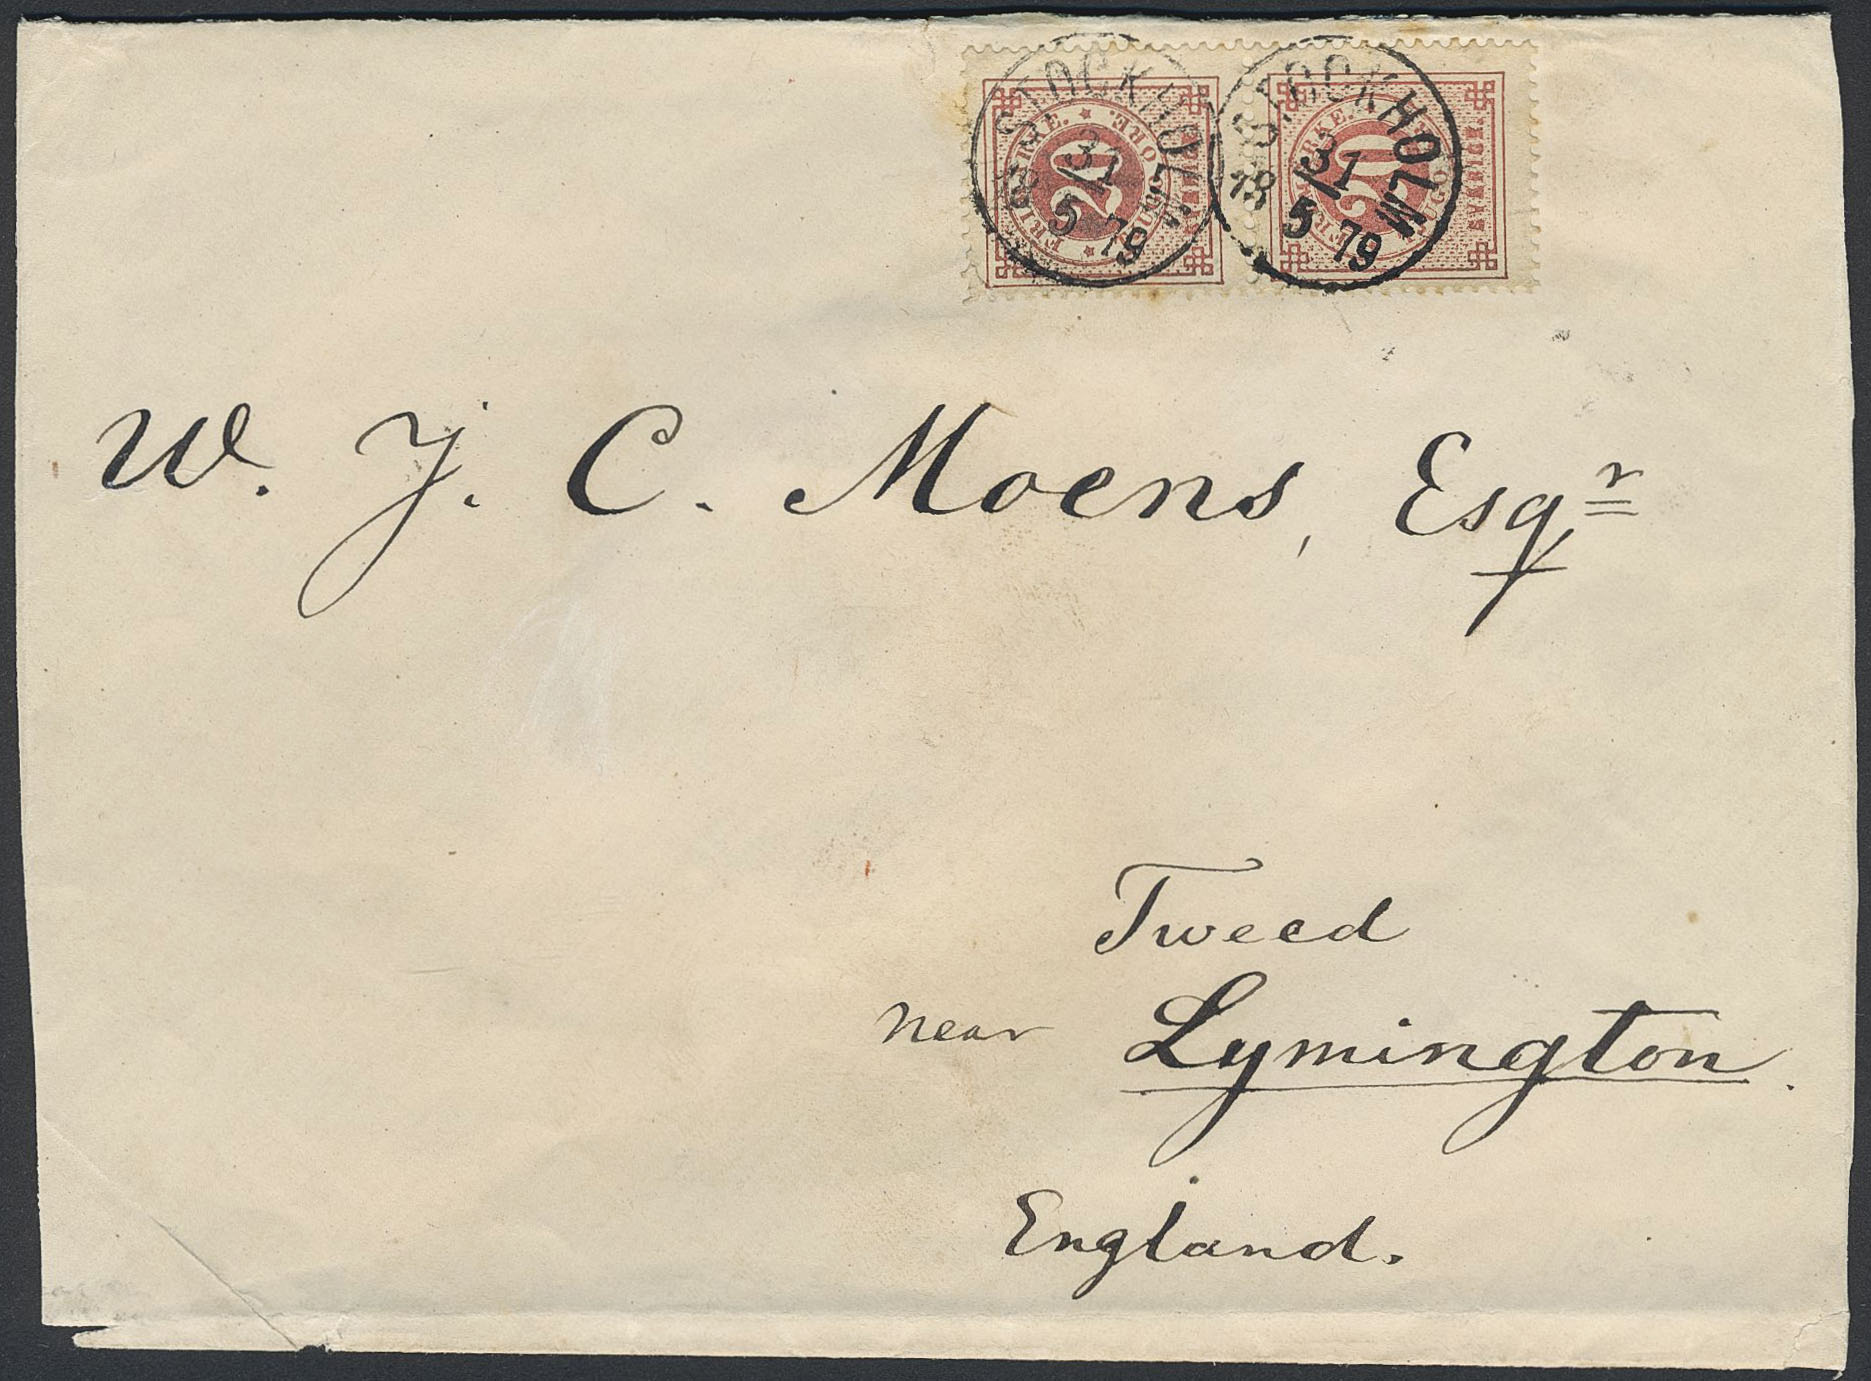 STOCKHOLM
31
5
79
STOCKHOLM
18 31
5
79
20
20
W. J. C. Moens, Esqr
Tweed
near Lymington.
England.